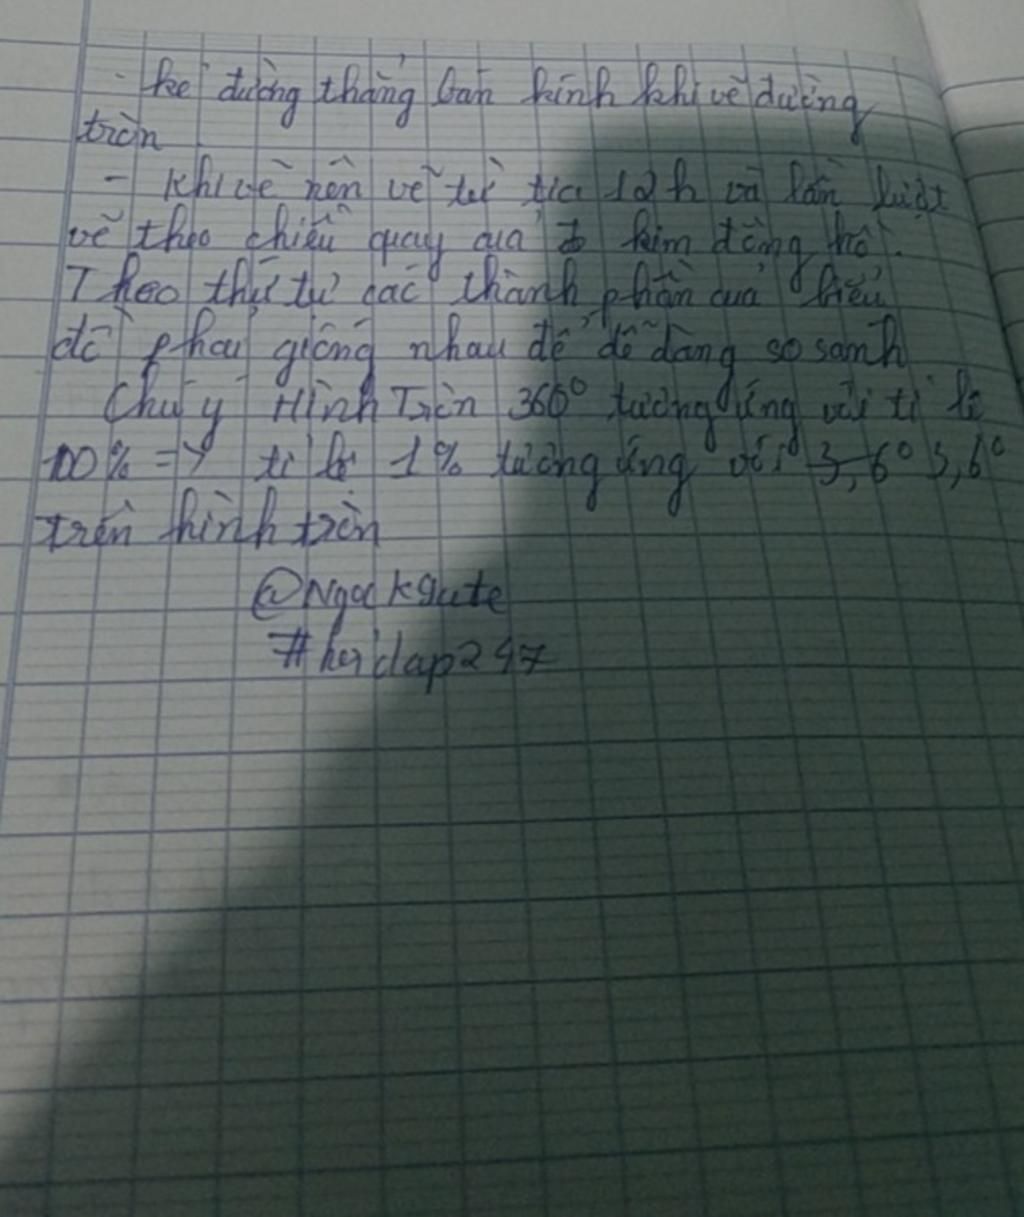 - kẻ đường thẳng bán kính khi vẽ đường
tròn
- Khi vẽ nên vẽ từ tia 12h và lần lượt
vẽ theo chiều quay của kim đồng hồ.
Theo thứ tự các thành phần của biểu
đồ phải giống nhau để dễ dàng so sanh
Chú ý Hình Tròn 360° tương ứng với tỉ lệ
100% => tỉ lệ 1% tương ứng với 3,6° 3,6°
trên hình tròn
@Ngockgute
#hoidap247